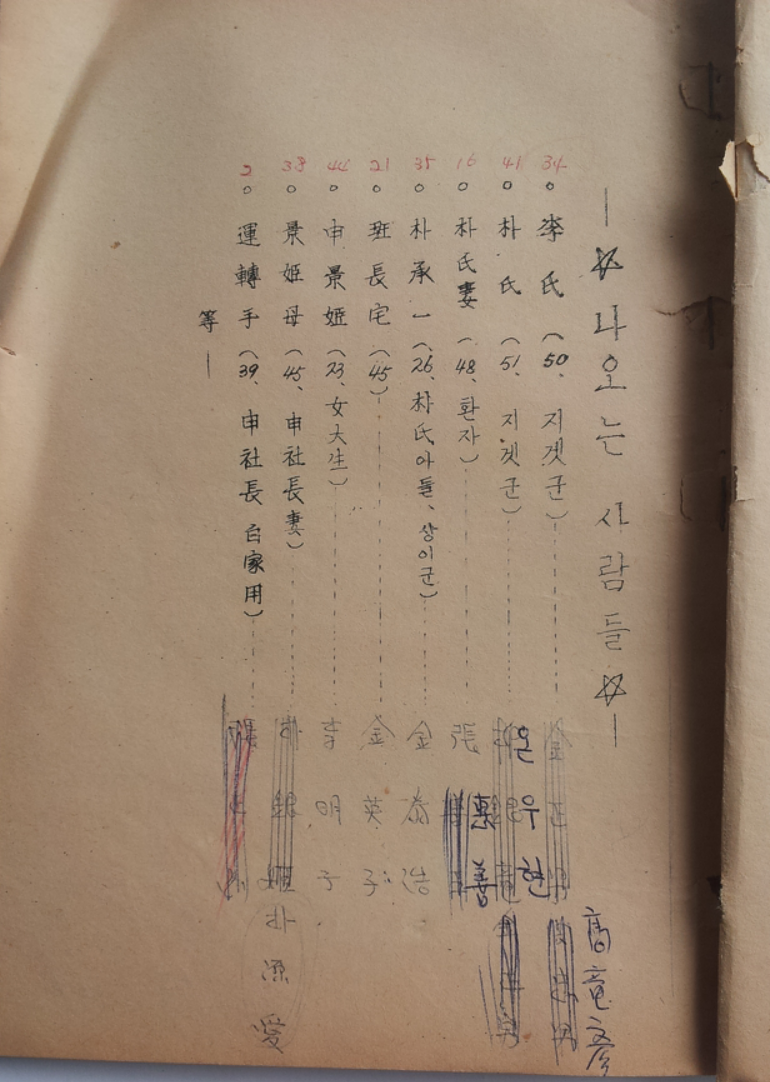 —☆나오는 사람들☆—
34 ○李氏 (50、지겟군)
高竜彦
41 ○朴氏 (51、지겟군) 온우현
16 ○朴氏妻 (48、환자) 張惠善
35 ○朴承一 (26、朴氏아들、상이군) 金泰浩
21 ○班長宅 (45) 金英子
44 ○申景姬 (23、女大生) 李明子
38 ○景姬母 (45、申社長妻) 朴銀姬 朴源愛
2 ○運轉手 (39、申社長 自家用)
等—